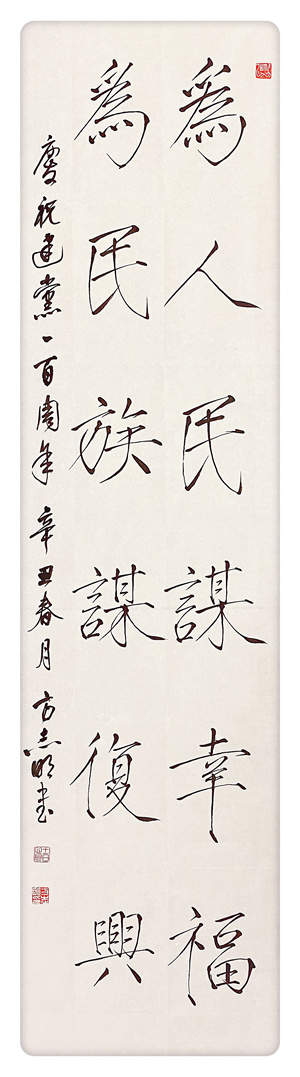 為人民謀幸福
為民族謀復興
慶祝建黨一百周年 辛丑春月 方志明書